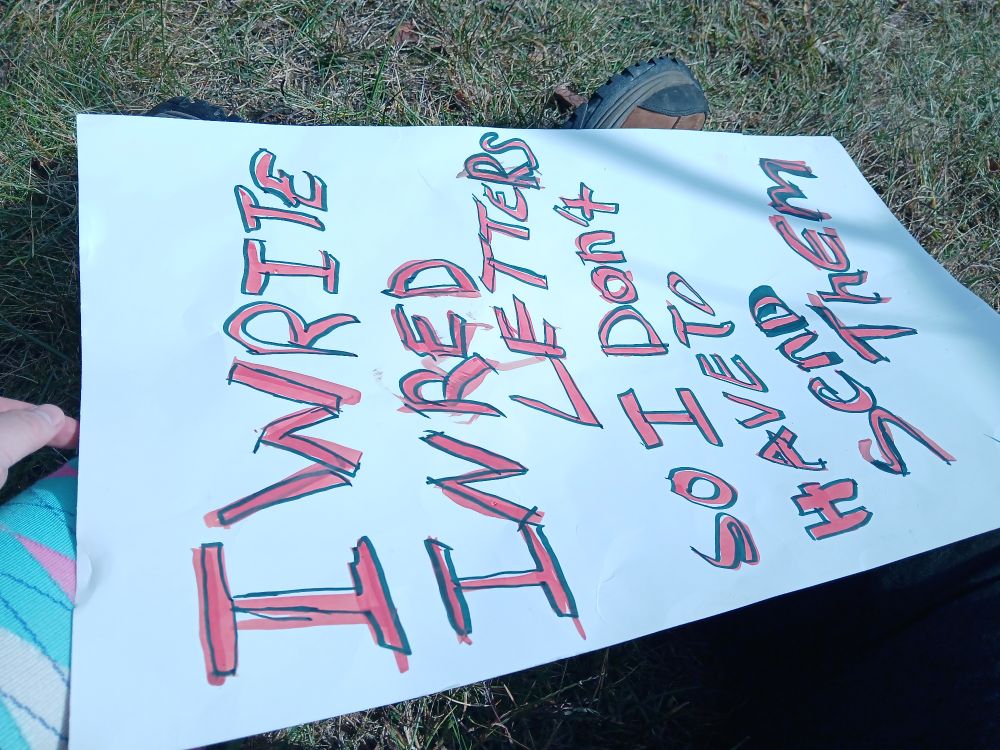 I WRITE
IN RED
LETTERS
SO I Dont
HAVE TO
SenD
THEm